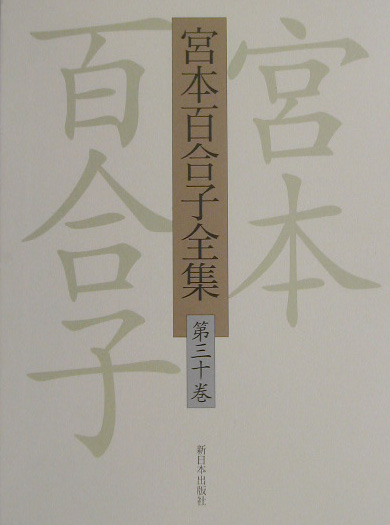 宮本
百合子
宮本百合子全集
第三十巻
新日本出版社